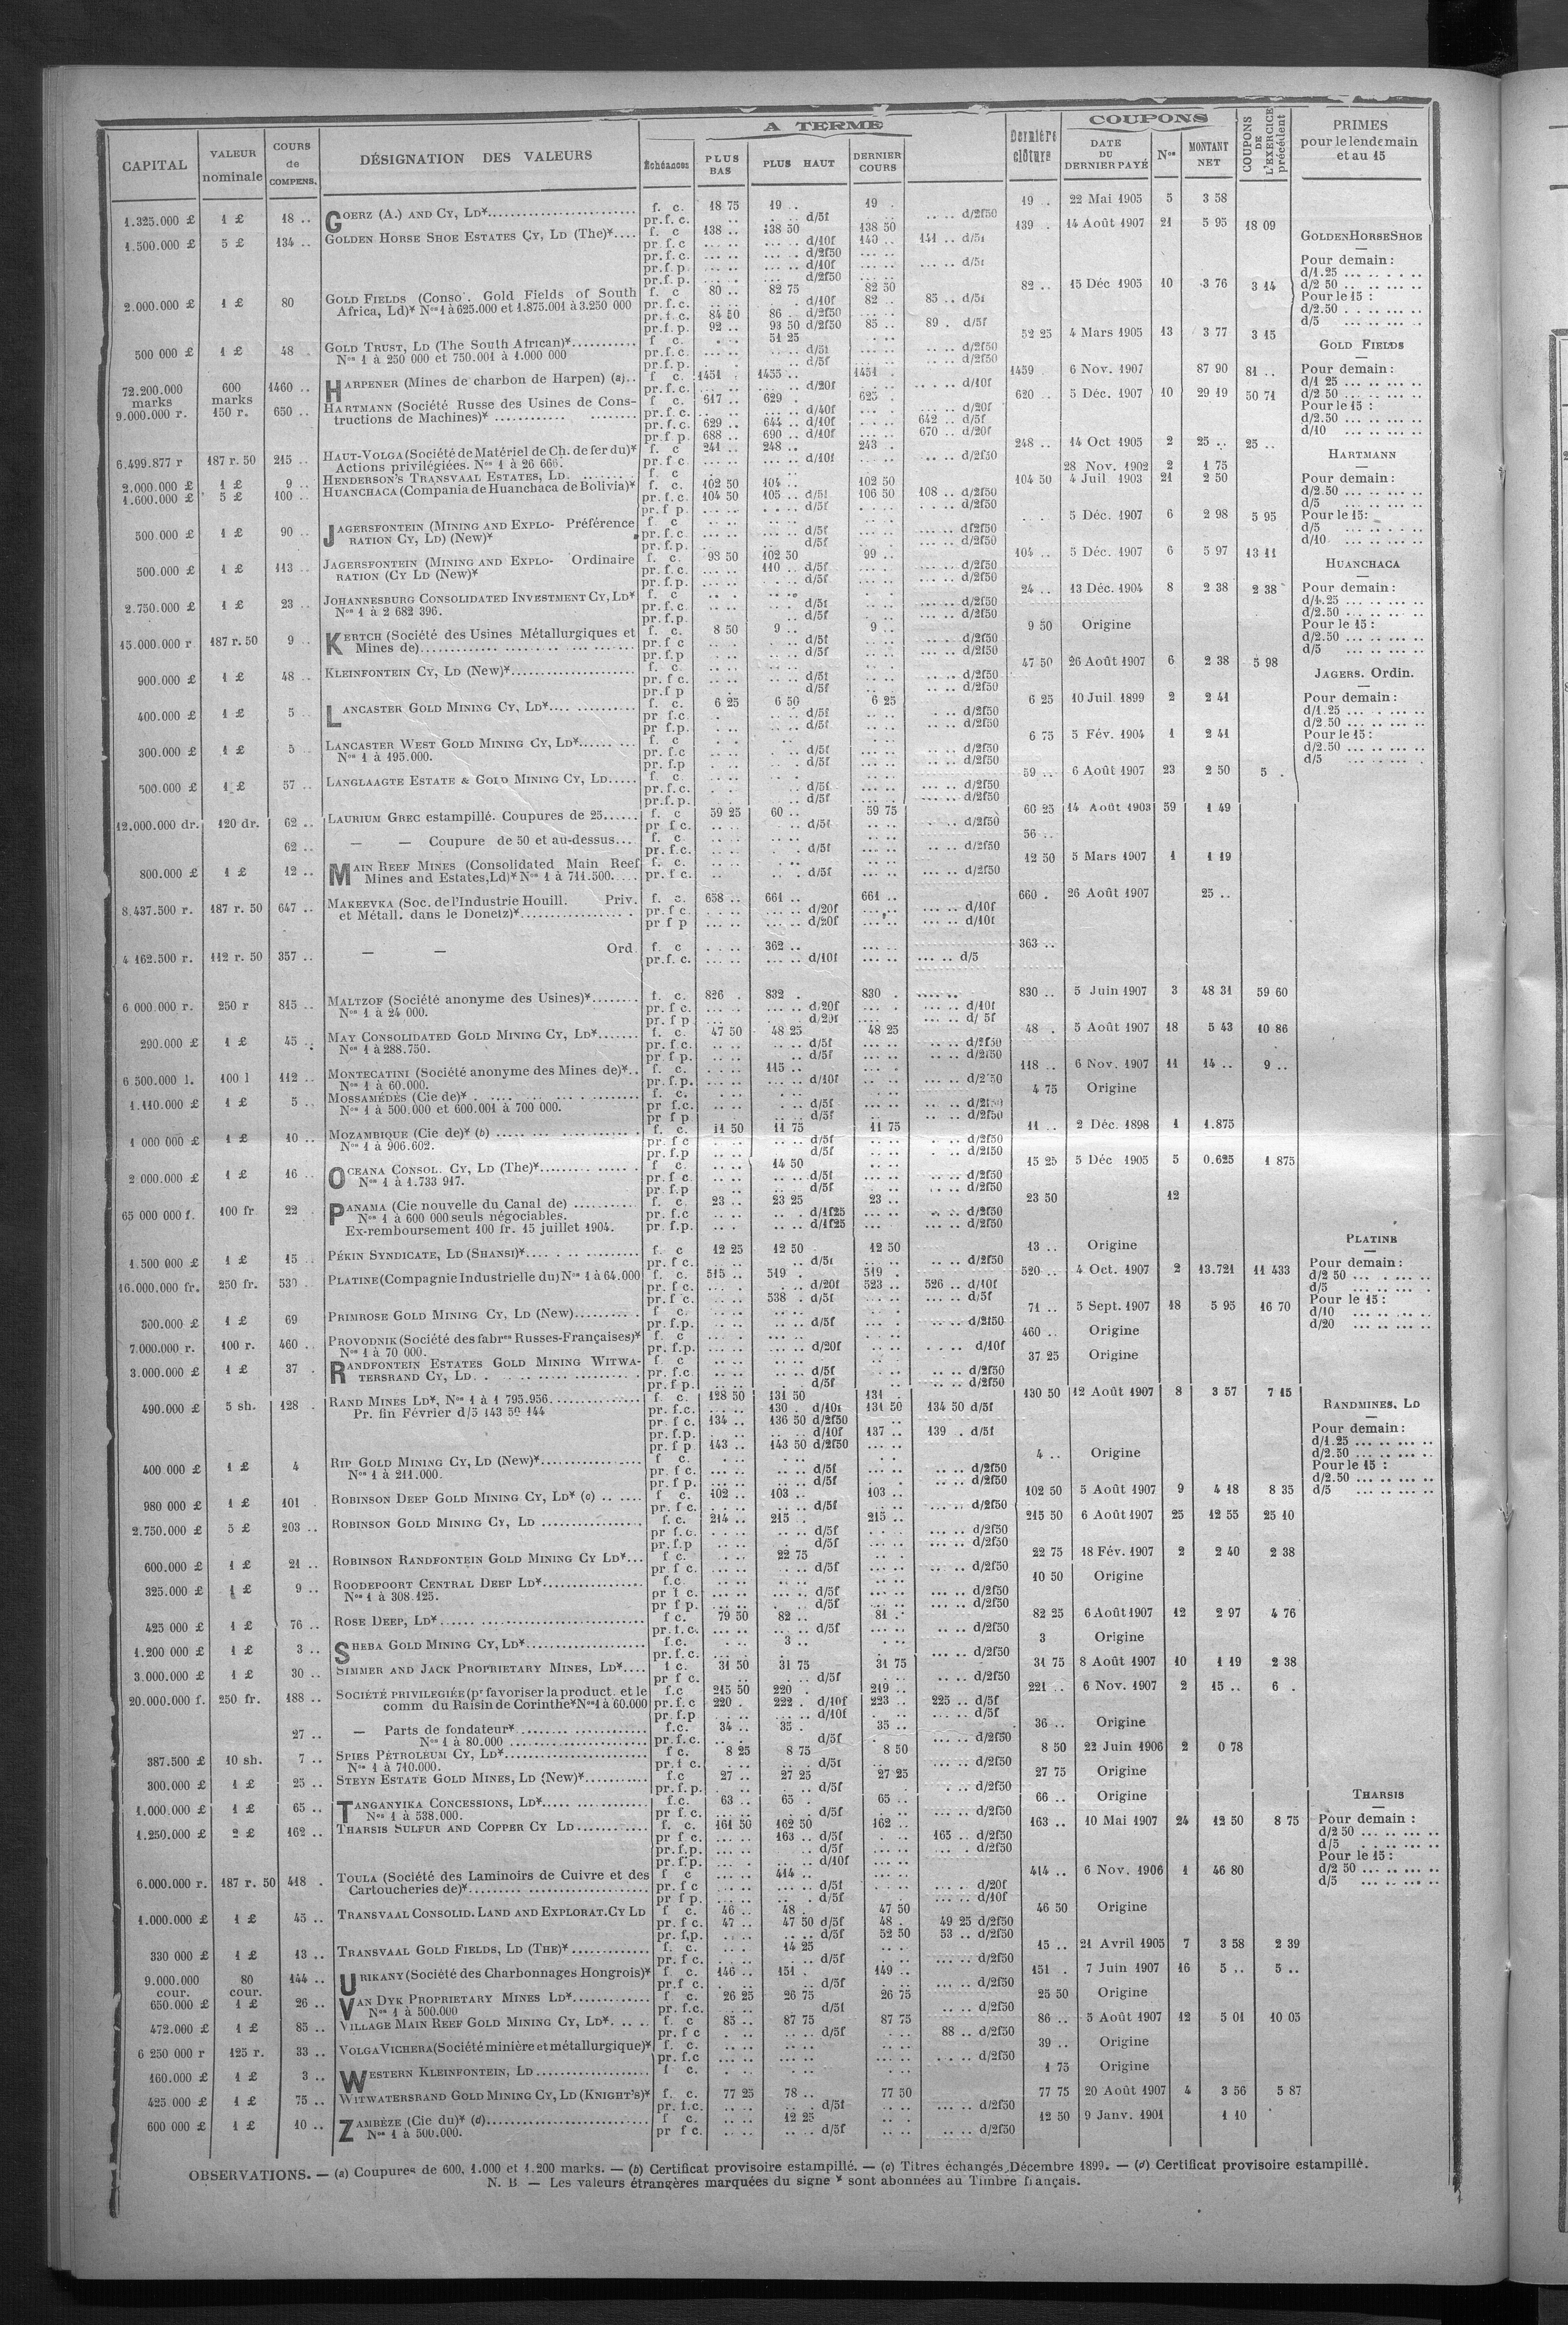 CAPITAL | VALEUR nominale | COURS de COMPENS. | DÉSIGNATION DES VALEURS | A TERME | Échéances | PLUS BAS | PLUS HAUT | DERNIER COURS | Dernière clôture | COUPONS | DATE DU DERNIER PAYÉ | Nos | MONTANT NET | COUPONS DE L'EXERCICE précédent | PRIMES pour le lendemain et au 15
1.325.000 £ 1 £ 18 .. GOERZ (A.) AND CY, LD* f. c. 18 75 19 . 19 . 19 . 22 Mai 1905 5 3 58
pr.f.c. d/5f d/2f50
1.500.000 £ 5 £ 134 .. GOLDEN HORSE SHOE ESTATES CY, LD (The)* f. c 138 .. 138 50 138 50 139 . 14 Août 1907 21 5 95 18 09
pr.f.c d/10f 140 .. 141 .. d/5f
pr.f.c. d/2f50
pr.f.p. d/10f d/5f
pr.f.p. d/2f50
2.000.000 £ 1 £ 80 GOLD FIELDS (Conso. Gold Fields of South f. c 80 .. 82 75 82 50 82 .. 15 Déc 1905 10 3 76 3 14
Africa, Ld)* Nos 1 à 625.000 et 1.875.001 à 3.250 000 pr.f.c. d/10f 82 .. 85 .. d/5f
pr.f.c. 84 50 86 . d/2f50
pr.f.p. 92 .. 93 50 d/2f50 85 .. 89 . d/5f
500 000 £ 1 £ 48 . GOLD TRUST, LD (The South African)* f. c. 51 25 52 25 4 Mars 1905 13 3 77 3 15
Nos 1 à 250 000 et 750.001 à 1.000 000 pr.f.c. d/5f d/2f50
pr.f.p. d/5f d/2f50
72.200.000 marks 600 marks 1460 .. HARPENER (Mines de charbon de Harpen) (a).. f c. 1451 . 1455 .. 1451 . 1459 6 Nov. 1907 87 90 81 ..
pr.f.c. d/20f d/10f
9.000.000 r. 150 r. 650 .. HARTMANN (Société Russe des Usines de Cons- f c. 617 .. 629 . 625 . 620 .. 5 Déc. 1907 10 29 19 50 71
tructions de Machines)* pr.f.c. d/40f d/20f
pr.f.c. 629 .. 644 .. d/10f 642 .. d/5f
pr.f.p. 688 .. 690 .. d/10f 670 .. d/20f
6.499.877 r 187 r. 50 215 .. HAUT-VOLGA (Société de Matériel de Ch. de fer du)* f. c 241 .. 248 .. 243 . 248 .. 14 Oct 1905 2 25 .. 25 ..
Actions privilégiées. Nos 1 à 26 666. pr.f c d/10f d/2f50
2.000.000 £ 1 £ 9 .. HENDERSON'S TRANSVAAL ESTATES, LD. f. c 28 Nov. 1902 2 1 75
1.600.000 £ 5 £ 100 .. HUANCHACA (Compania de Huanchaca de Bolivia)* f. c. 102 50 104 .. 102 50 104 50 4 Juil 1903 21 2 50
pr.f.c. 104 50 105 .. d/5f 106 50 108 .. d/2f50
pr.f p. d/5f d/2f50
500.000 £ 1 £ 90 .. JAGERSFONTEIN (MINING AND EXPLO- Préférence f c 5 Déc. 1907 6 2 98 5 95
RATION CY, LD) (New)* pr.f.c. d/5f d/2f50
pr.f.p. d/5f d/2f50
500.000 £ 1 £ 113 .. JAGERSFONTEIN (MINING AND EXPLO- Ordinaire f. c. 98 50 102 50 99 .. 104 .. 5 Déc. 1907 6 5 97 13 11
RATION (CY LD (New)* pr.f.c. 110 .. d/5f d/2f50
pr.f.p. d/5f d/2f50
2.750.000 £ 1 £ 23 .. JOHANNESBURG CONSOLIDATED INVESTMENT CY, LD* f. c 24 .. 13 Déc. 1904 8 2 38 2 38
Nos 1 à 2 682 396. pr.f.c. d/5f d/2f50
pr.f.p. d/5f d/2f50
15.000.000 r 187 r. 50 9 .. KERTCH (Société des Usines Métallurgiques et f. c. 8 50 9 .. 9 .. 9 50 Origine
Mines de) pr.f c d/5f d/2f50
pr.f.p d/5f d/2f50
900.000 £ 1 £ 48 .. KLEINFONTEIN CY, LD (New)* f. c. 47 50 26 Août 1907 6 2 38 5 98
pr.f c. d/5f d/2f50
pr.f p d/5f d/2f50
400.000 £ 1 £ 5 . LANCASTER GOLD MINING CY, LD* f. c. 6 25 6 50 6 25 6 25 10 Juil 1899 2 2 41
pr f.c. d/5f d/2f50
pr f.p. d/5f d/2f50
300.000 £ 1 £ 5 . LANCASTER WEST GOLD MINING CY, LD* f. c 6 75 5 Fév. 1904 1 2 41
Nos 1 à 195.000. pr.f.c d/5f d/2f50
pr.f.p d/5f d/2f50
500.000 £ 1 £ 57 .. LANGLAAGTE ESTATE & GOLD MINING CY, LD f. c. 59 .. 6 Août 1907 23 2 50 5 .
pr.f.c. d/5f d/2f50
pr.f.p. d/5f d/2f50
12.000.000 dr. 120 dr. 62 .. LAURIUM GREC estampillé. Coupures de 25 f. c 59 25 60 .. 59 75 60 25 14 Août 1903 59 1 49
pr f c. d/5f d/2f50
62 .. — — Coupure de 50 et au-dessus f. c 56 ..
pr.f.c. d/5f d/2f50
800.000 £ 1 £ 12 .. MAIN REEF MINES (Consolidated Main Reef f. c. 12 50 5 Mars 1907 1 1 19
Mines and Estates, Ld)* Nos 1 à 711.500. pr f c. d/5f d/2f50
8.437.500 r. 187 r. 50 647 .. MAKEEVKA (Soc. de l'Industrie Houill. Priv. f. c. 658 .. 661 .. 661 .. 660 . 26 Août 1907 25 ..
et Métall. dans le Donetz)* pr.f c. d/20f d/10f
pr f p d/20f d/10f
4 162.500 r. 112 r. 50 357 .. — — Ord f. c 362 .. 363 ..
pr.f. c. d/10f d/5
6 000.000 r. 250 r 815 .. MALTZOF (Société anonyme des Usines)* f. c. 826 . 832 . 830 . 830 .. 5 Juin 1907 3 48 31 59 60
Nos 1 à 24 000. pr.f c. d/20f d/10f
pr f p d/20f d/ 5f
290.000 £ 1 £ 45 .. MAY CONSOLIDATED GOLD MINING CY, LD* f. c. 47 50 48 25 48 25 48 . 5 Août 1907 18 5 43 10 86
Nos 1 à 288.750. pr.f.c. d/5f d/2f50
pr.f p. d/5f d/2f50
6 500.000 l. 100 l 112 .. MONTECATINI (Société anonyme des Mines de)* f. c. 115 .. 118 .. 6 Nov. 1907 11 14 .. 9 ..
Nos 1 à 60.000. pr.f.p. d/10f d/2 50
1.110.000 £ 1 £ 5 .. MOSSAMÉDÈS (Cie de)* f. c. 4 75 Origine
Nos 1 à 500.000 et 600.001 à 700 000. pr f.c. d/5f d/2f50
pr f p d/5f d/2f50
1 000 000 £ 1 £ 10 .. MOZAMBIQUE (Cie de)* (b) f. c. 11 50 11 75 11 75 11 .. 2 Déc. 1898 1 1.875
Nos 1 à 906.602. pr. f c d/5f d/2f50
pr.f.p d/5f d/2f50
2 000.000 £ 1 £ 16 .. OCEANA CONSOL. CY, LD (The)* f c. 14 50 15 25 5 Déc 1905 5 0.625 1 875
Nos 1 à 1.733 917. pr.f c. d/5f d/2f50
pr. f.p d/5f d/2f50
65 000 000 f. 100 fr 22 . PANAMA (Cie nouvelle du Canal de) f. c. 23 .. 23 25 23 .. 23 50 12
Nos 1 à 600 000 seuls négociables. pr.f.c d/1f25 d/2f50
Ex-remboursement 100 fr. 15 juillet 1904. pr.f.p. d/1f25 d/2f50
1.500 000 £ 1 £ 15 .. PÉKIN SYNDICATE, LD (SHANSI)* f. c 12 25 12 50 12 50 13 .. Origine
pr.f c. d/5f d/2f50
16.000.000 fr. 250 fr. 530 . PLATINE (Compagnie Industrielle du) Nos 1 à 64.000 f. c. 515 .. 519 . 519 . 520 .. 4 Oct. 1907 2 13.721 11 433
pr.f c. d/20f 523 .. 526 .. d/10f
pr.f c. 538 . d/5f d/5f
300.000 £ 1 £ 69 PRIMROSE GOLD MINING CY, LD (New) f c. 71 .. 5 Sept. 1907 18 5 95 16 70
pr.f.p. d/5f d/2f50
7.000.000 r. 100 r. 460 . PROVODNIK (Société des fabres Russes-Françaises)* f. c 460 .. Origine
Nos 1 à 70 000. pr.f.p. d/20f d/10f
3.000.000 £ 1 £ 37 . RANDFONTEIN ESTATES GOLD MINING WITWA- f. c 37 25 Origine
TERSRAND CY, LD. pr.f.c. d/5f d/2f50
pr.f p. d/5f d/2f50
490.000 £ 5 sh. 128 . RAND MINES LD*, Nos 1 à 1 795.956. f c. 128 50 131 50 131 . 130 50 12 Août 1907 8 3 57 7 15
Pr. fin Février d/5 143 50 144 pr.f.c. 130 . d/10f 131 50 134 50 d/5f
pr.f c. 134 .. 136 50 d/2f50
pr.f.p. d/10f 137 .. 139 . d/5f
pr.f p 143 .. 143 50 d/2f50
400.000 £ 1 £ 4 RIP GOLD MINING CY, LD (New)* f c. 4 .. Origine
Nos 1 à 211.000. pr. f c. d/5f d/2f50
pr.f p. d/5f d/2f50
980 000 £ 1 £ 101 . ROBINSON DEEP GOLD MINING CY, LD* (c) f c. 102 .. 103 .. 103 .. 102 50 5 Août 1907 9 4 18 8 35
pr.f c. d/5f d/2f50
2.750.000 £ 5 £ 203 .. ROBINSON GOLD MINING CY, LD f. c. 214 .. 215 . 215 .. 215 50 6 Août 1907 25 12 55 25 10
pr f.c. d/5f d/2f50
pr.f.p d/5f d/2f50
600.000 £ 1 £ 21 .. ROBINSON RANDFONTEIN GOLD MINING CY LD* f c. 22 75 22 75 18 Fév. 1907 2 2 40 2 38
pr f c. d/5f d/2f50
325.000 £ 1 £ 9 .. ROODEPOORT CENTRAL DEEP LD* f.c. 10 50 Origine
Nos 1 à 308.125. pr f c. d/5f d/2f50
pr f p. d/5f d/2f50
425 000 £ 1 £ 76 .. ROSE DEEP, LD* f c. 79 50 82 .. 81 .. 82 25 6 Août 1907 12 2 97 4 76
pr.f.c. d/5f d/2f50
1.200 000 £ 1 £ 3 .. SHEBA GOLD MINING CY, LD* f.c. 3 .. 3 Origine
pr.f.c. d/2f50
3.000.000 £ 1 £ 30 .. SIMMER AND JACK PROPRIETARY MINES, LD* f c. 31 50 31 75 31 75 31 75 8 Août 1907 10 1 19 2 38
pr f c. d/5f d/2f50
20.000.000 f. 250 fr. 188 .. SOCIÉTÉ PRIVILEGIÉE (pr favoriser la product. et le f.c 215 50 220 . 219 .. 221 .. 6 Nov. 1907 2 15 .. 6 .
comm du Raisin de Corinthe* Nos 1 à 60.000 pr.f.c 220 . 222 . d/10f 223 .. 225 .. d/5f
pr.f.p d/10f d/5f
27 .. — Parts de fondateur* f.c. 34 .. 35 . 35 .. 36 .. Origine
Nos 1 à 80.000 pr.f.c. d/5f d/2f50
387.500 £ 10 sh. 7 .. SPIES PÉTROLEUM CY, LD* f c. 8 25 8 75 8 50 8 50 22 Juin 1906 2 0 78
Nos 1 à 710.000. pr.f c. d/5f d/2f50
300.000 £ 1 £ 25 .. STEYN ESTATE GOLD MINES, LD (New)* f.c 27 .. 27 25 27 25 27 75 Origine
pr.f.p. d/5f d/2f50
1.000.000 £ 1 £ 65 .. TANGANYIKA CONCESSIONS, LD* f.c. 63 .. 65 . 65 .. 66 .. Origine
Nos 1 à 538.000. pr f.c. d/5f d/2f50
1.250.000 £ 2 £ 162 .. THARSIS SULFUR AND COPPER CY LD f. c. 161 50 162 50 162 .. 163 .. 10 Mai 1907 24 12 50 8 75
pr f c. 163 .. d/5f 165 .. d/2f50
pr.f.p. d/5f d/2f50
pr.f.p. d/10f
6.000.000 r. 187 r. 50 418 . TOULA (Société des Laminoirs de Cuivre et des f c 414 .. 414 .. 6 Nov. 1906 1 46 80
Cartoucheries de)* pr.f c d/5f d/20f
pr f p. d/5f d/10f
1.000.000 £ 1 £ 45 .. TRANSVAAL CONSOLID. LAND AND EXPLORAT. CY LD f c. 46 .. 48 . 47 50 46 50 Origine
pr.f c. 47 .. 47 50 d/5f 48 . 49 25 d/2f50
pr. f.p. d/5f 52 50 53 .. d/2f50
330 000 £ 1 £ 13 .. TRANSVAAL GOLD FIELDS, LD (THE)* f. c. 14 25 15 .. 21 Avril 1905 7 3 58 2 39
pr.f c. d/5f d/2f50
9.000.000 cour. 80 cour. 144 .. URIKANY (Société des Charbonnages Hongrois)* f c. 146 .. 151 . 149 .. 151 . 7 Juin 1907 16 5 .. 5 ..
pr.f c. d/5f d/2f50
650.000 £ 1 £ 26 .. VAN DYK PROPRIETARY MINES LD* f c. 26 25 26 75 26 75 25 50 Origine
Nos 1 à 500.000 pr. f.c. d/5f d/2f50
472.000 £ 1 £ 85 .. VILLAGE MAIN REEF GOLD MINING CY, LD* f. c 85 .. 87 75 87 75 86 .. 5 Août 1907 12 5 01 10 05
pr.f c d/5f 88 .. d/2f50
6 250 000 r 125 r. 33 .. VOLGA VICHERA (Société minière et métallurgique)* f. c. 39 .. Origine
pr.f.c d/2f50
160.000 £ 1 £ 3 .. WESTERN KLEINFONTEIN, LD f c. 1 75 Origine
425 000 £ 1 £ 75 .. WITWATERSRAND GOLD MINING CY, LD (KNIGHT'S)* f. c. 77 25 78 .. 77 50 77 75 20 Août 1907 4 3 56 5 87
pr. f.c. d/5f d/2f50
600 000 £ 1 £ 10 .. ZAMBÈZE (Cie du)* (d) f c. 12 25 12 50 9 Janv. 1901 1 10
Nos 1 à 500.000. pr f c. d/5f d/2f50
GOLDEN HORSE SHOE
Pour demain :
d/1.25
d/2 50
Pour le 15 :
d/2.50
d/5
GOLD FIELDS
Pour demain :
d/1 25
d/2 50
Pour le 15 :
d/2.50
d/10
HARTMANN
Pour demain :
d/2.50
d/5
Pour le 15:
d/5
d/10
HUANCHACA
Pour demain :
d/1.25
d/2.50
Pour le 15 :
d/2.50
d/5
JAGERS. Ordin.
Pour demain :
d/1.25
d/2.50
Pour le 15 :
d/2.50
d/5
PLATINE
Pour demain :
d/2 50
d/5
Pour le 15 :
d/10
d/20
RANDMINES, LD
Pour demain :
d/1.25
d/2.50
Pour le 15 :
d/2.50
d/5
THARSIS
Pour demain :
d/2 50
d/5
Pour le 15 :
d/2 50
d/5
OBSERVATIONS. — (a) Coupures de 600, 1.000 et 1.200 marks. — (b) Certificat provisoire estampillé. — (c) Titres échangés Décembre 1899. — (d) Certificat provisoire estampillé.
N. B — Les valeurs étrangères marquées du signe * sont abonnées au Timbre français.